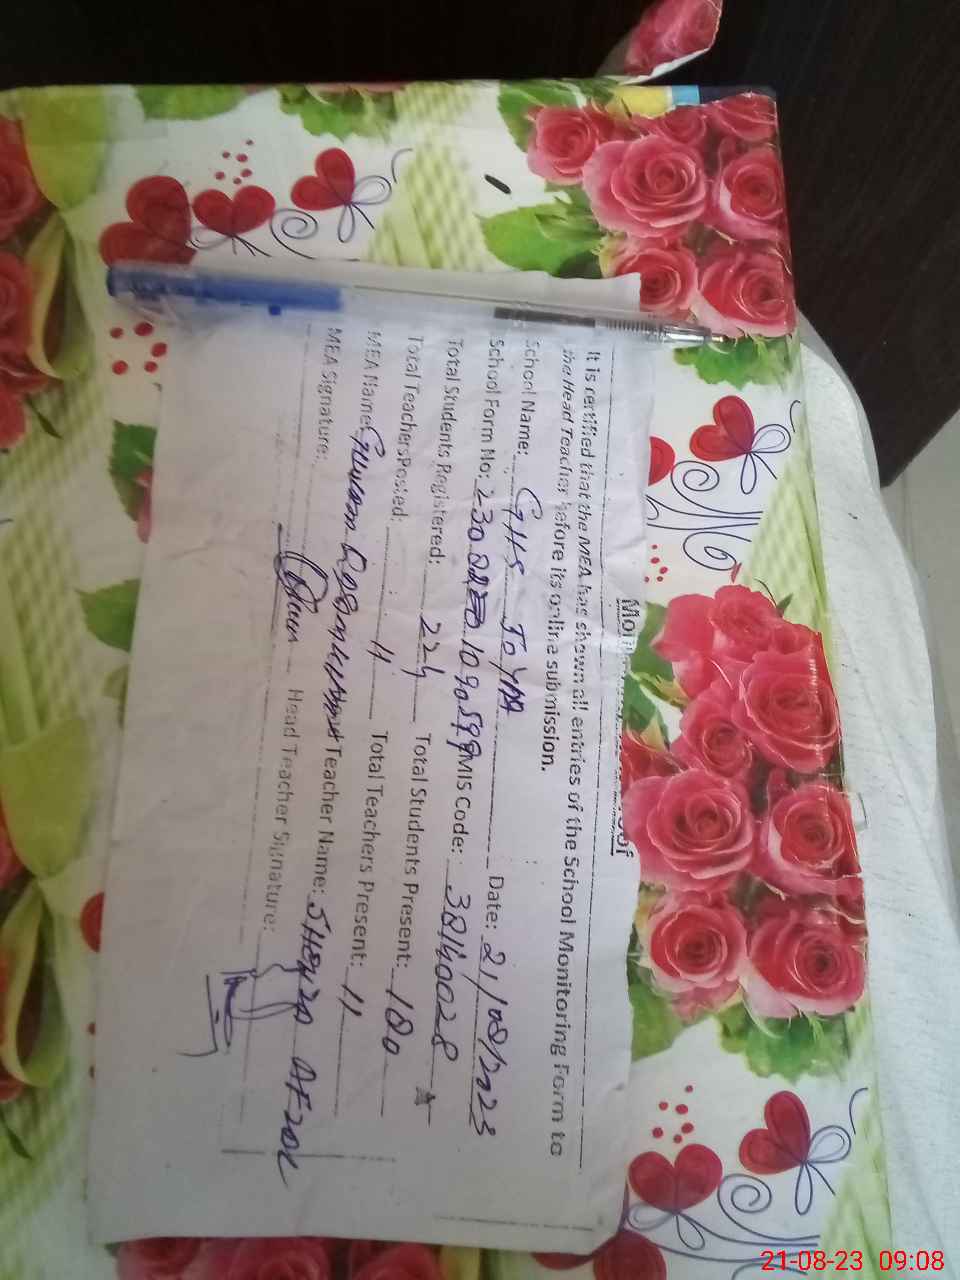 It is certified that the MEA has shown all entries of the School Monitoring Form to
the Head Teacher before its online submission.
School Name: GHS JOYIA Date: 21/08/2023
School Form No: 230821090599 EMIS Code: 38140028
Total Students Registered: 224 Total Students Present: 180
Total Teachers Posted: 11 Total Teachers Present: 11
MEA Name: Teacher Name: AFZAL
MEA Signature: Head Teacher Signature:
21-08-23 09:08